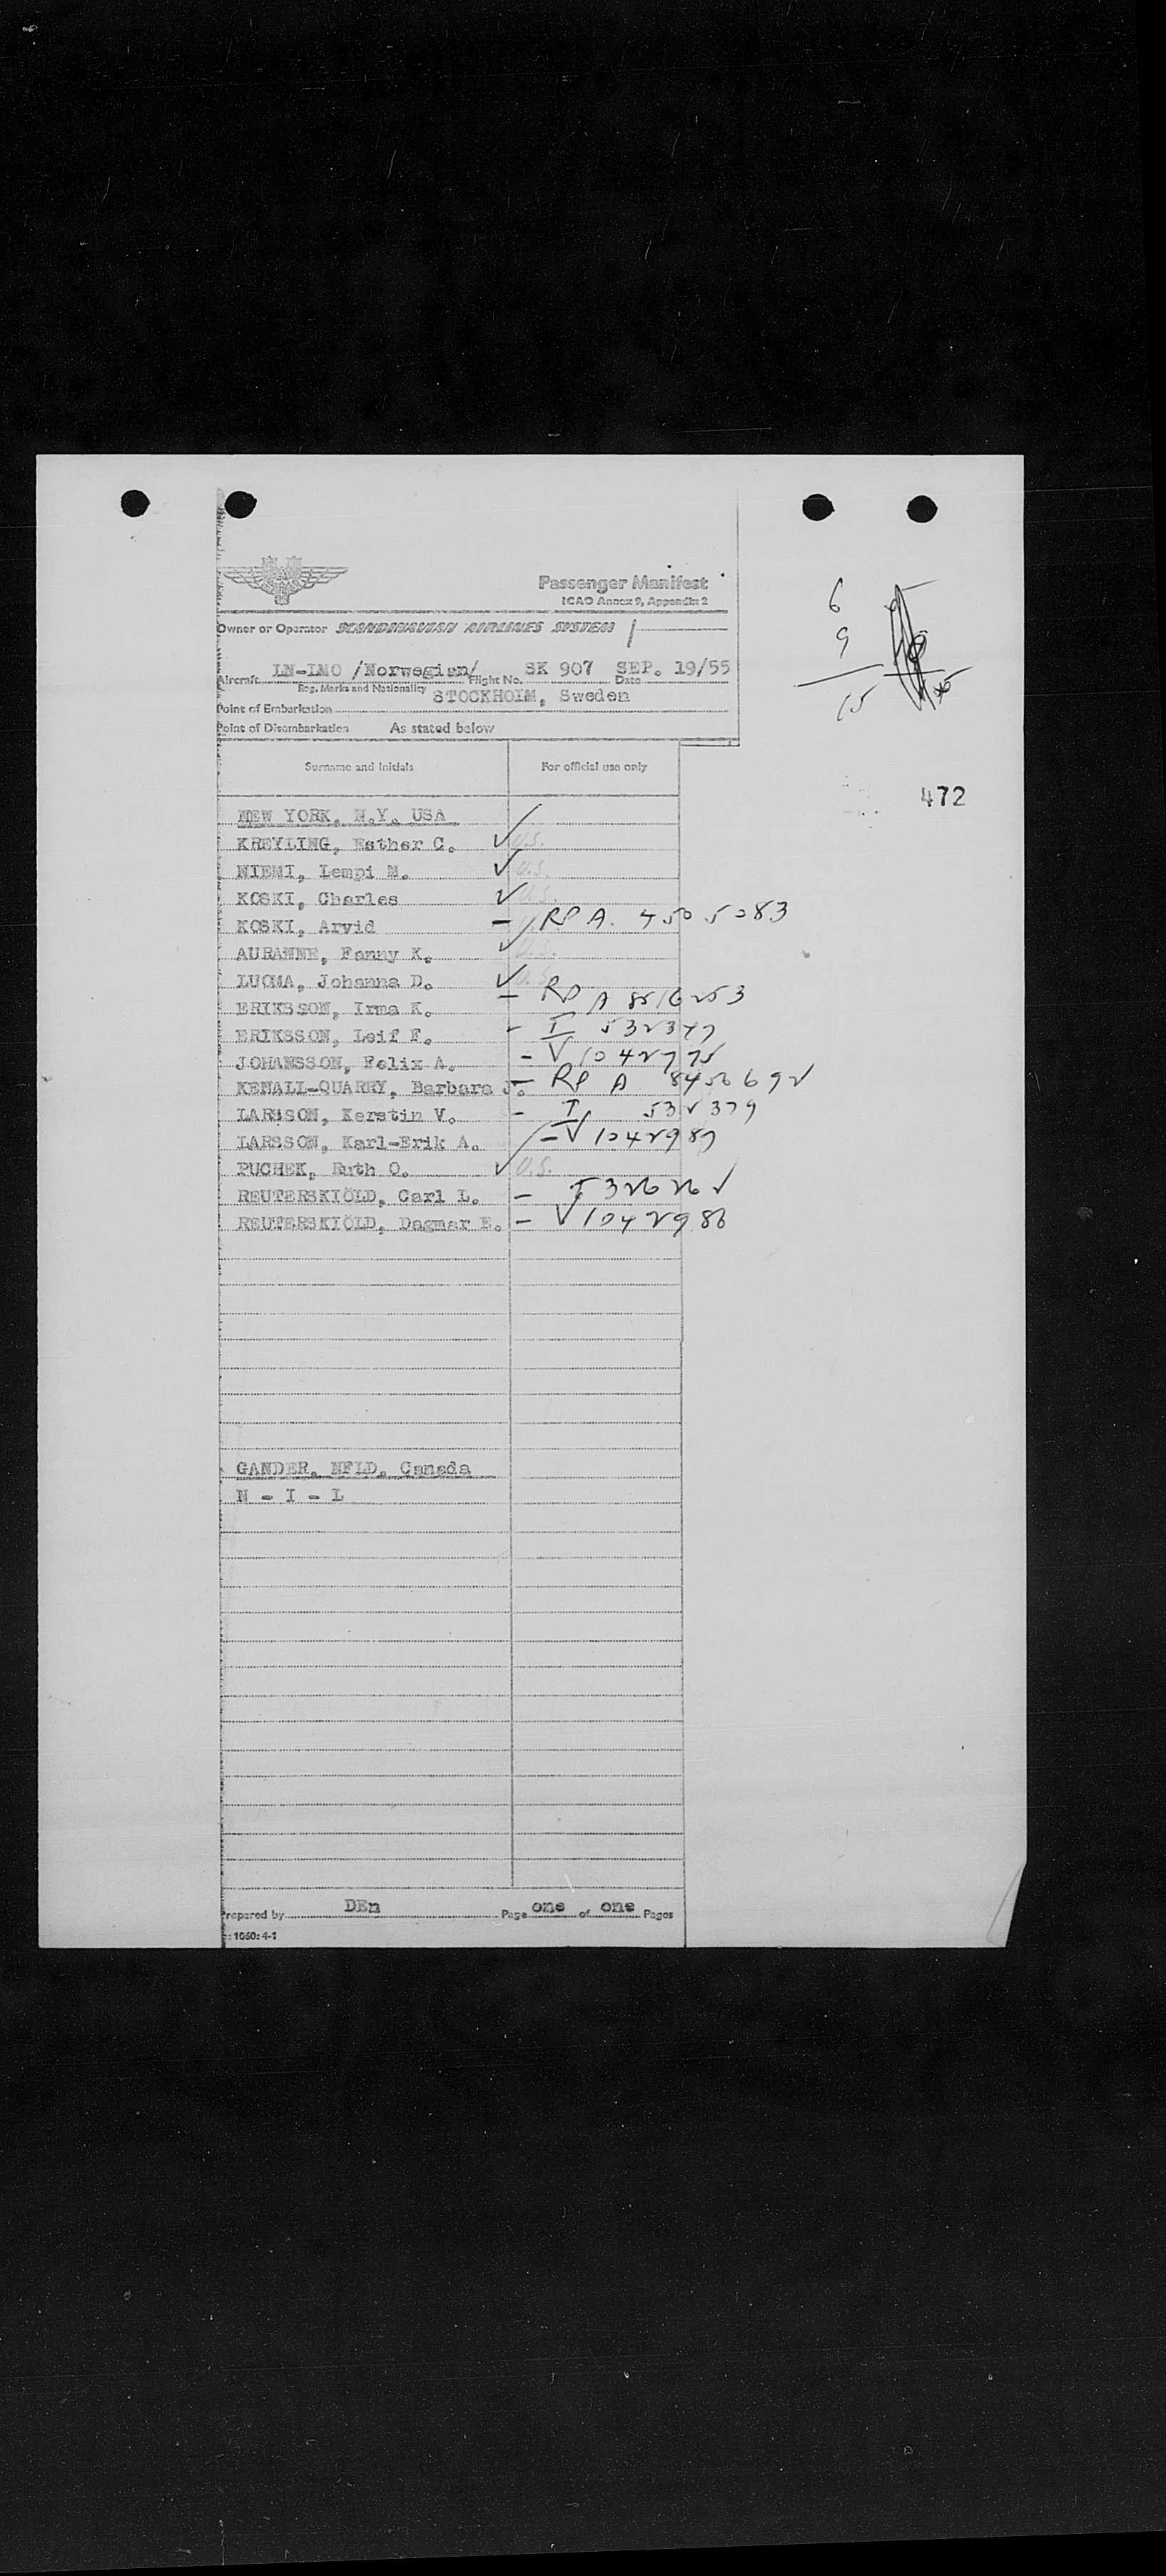 Passenger Manifest
ICAO Annex 9, Appendix 2
Owner or Operator SCANDINAVIAN AIRLINES SYSTEM
Aircraft LN-LMO /Norwegian/ Flight No. SK 907 SEP. 19/55 Date
Reg. Marks and Nationality
Point of Embarkation STOCKHOLM, Sweden
Point of Disembarkation As stated below
6
9
15
Surname and initials For official use only
472
NEW YORK, N.Y. USA
KREYLING, Esther C. ✓ U.S.
NIEMI, Lempi M. ✓ U.S.
KOSKI, Charles ✓ U.S.
KOSKI, Arvid — RP A. 4505083
AURANNE, Fanny K. ✓ U.S.
LUOMA, Johanna D. ✓ U.S.
ERIKSSON, Irma K. — RP A 8516253
ERIKSSON, Leif F. - I 532347
JOHANSSON, Felix A. - V 1042975
KENALL-QUARRY, Barbara J. — RP A 8456692
LARSSON, Kerstin V. - I 532379
LARSSON, Karl-Erik A. - V 1042987
PUCHEK, Ruth O. ✓ U.S.
REUTERSKIÖLD, Carl L. — I 326262
REUTERSKIÖLD, Dagmar E. — V 1042986
GANDER, NFLD, Canada
N - I - L
Prepared by DEn Page one of one Pages
1060: 4-1